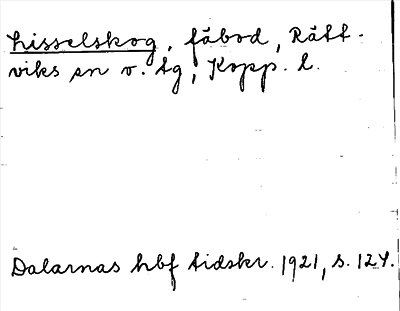 Lisselskog, fäbod, Rätt-
viks sn o. tg, Kopp. l.
Dalarnas hbf tidskr. 1921, s. 124.